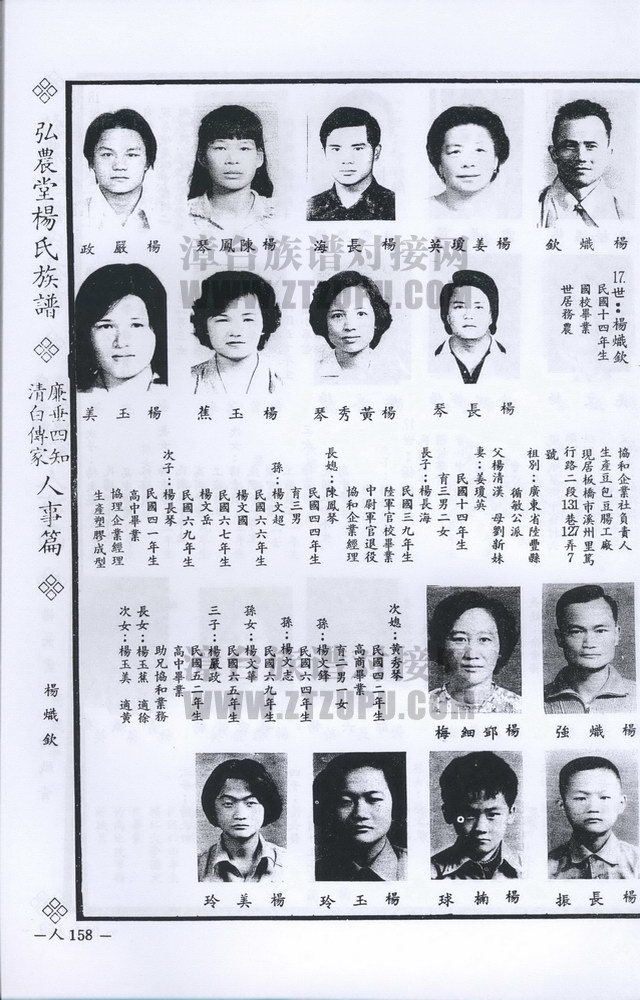 弘農堂楊氏族譜
廉垂四知
清白傳家
人事篇
楊熾欽
楊熾欽
楊姜瓊英
楊長海
楊陳鳳琴
楊嚴政
17.世：楊熾欽
民國十四年生
國校畢業
世居務農
楊長琴
楊黃秀琴
楊玉蕉
楊玉美
協和企業社負責人
生產豆包豆腸工廠
現居板橋市溪州里篤
行路二段131巷127弄7
號
祖別：廣東省陸豐縣
循敏公派
父楊清漢　母劉新妹
妻：姜瓊英
民國十四年生
育三男二女
長子：楊長海
民國三九年生
陸軍官校畢業
中尉軍官退役
協和企業經理
長媳：陳鳳琴
民國四四年生
育三男
孫：楊文超
民國六六年生
楊文國
民國六七年生
楊文岳
民國六九年生
次子：楊長琴
民國四一年生
高中畢業
協理企業經理
生產塑膠成型
楊熾強
楊鄧細梅
次媳：黃秀琴
民國四二年生
高商畢業
育二男一女
孫：楊文鋒
民國六四年生
孫：楊文志
民國六九年生
孫女：楊文華
民國六五年生
三子：楊嚴政
民國五二年生
高中畢業
助兄協和業務
長女：楊玉蕉　適徐
次女：楊玉美　適黃
楊長振
楊楠球
楊玉玲
楊美玲
—人 158 —
漳台族谱对接网
WWW.ZTZUPU.COM
漳台族谱对接网
WWW.ZTZUPU.COM